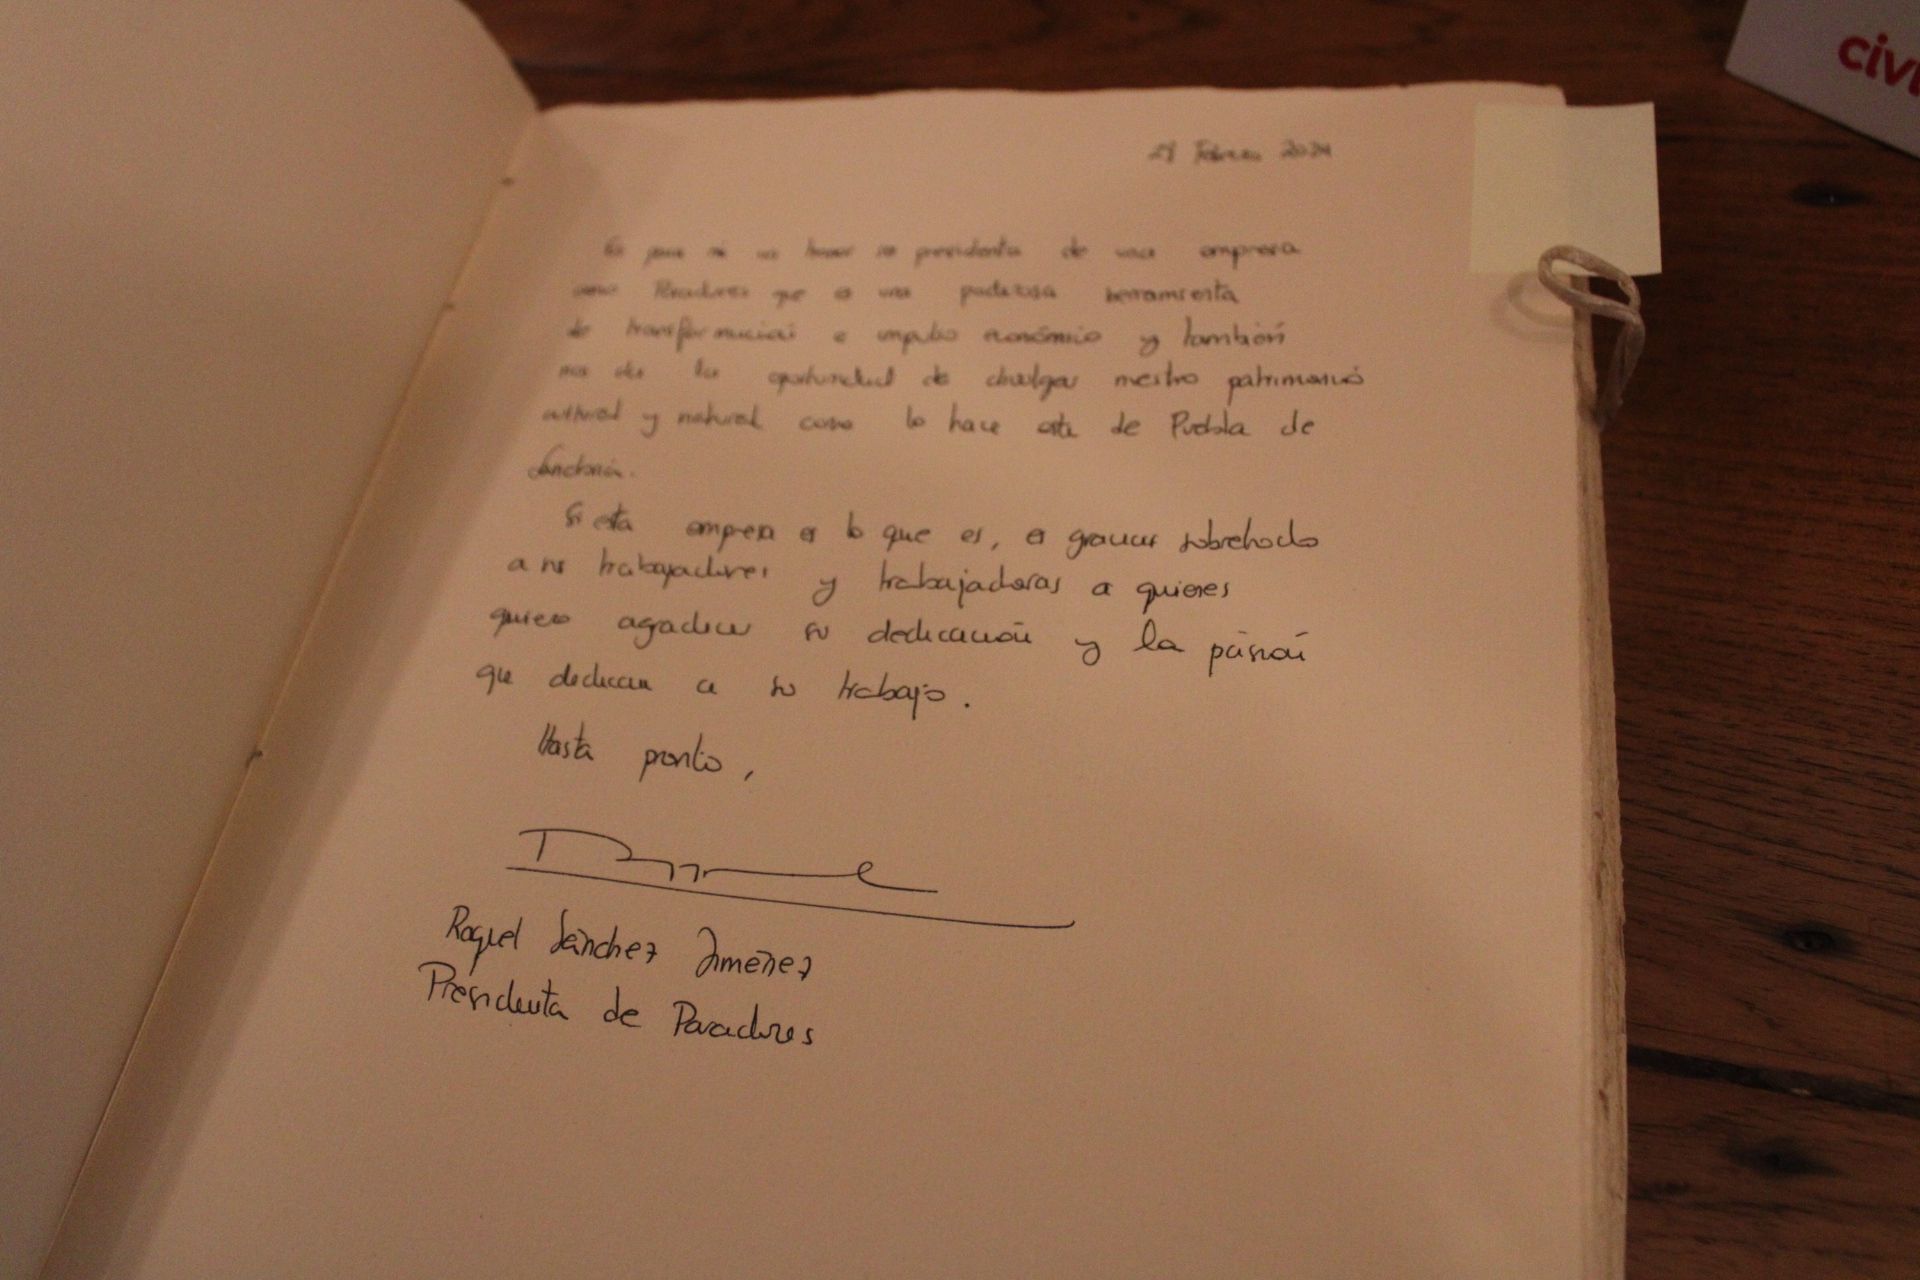 Febrero 2024
Es para mi un honor ser presidenta de una empresa
como Paradores que es una poderosa herramienta
de transformación e impulso económico y también
nos da la oportunidad de divulgar nuestro patrimonio
cultural y natural como lo hace este de Puebla de
Sanabria.
Si esta empresa es lo que es, es gracias sobretodo
a sus trabajadores y trabajadoras a quienes
quiero agradecer su dedicación y la pasión
que dedican a su trabajo.
Hasta pronto,
Raquel Sánchez Jiménez
Presidenta de Paradores